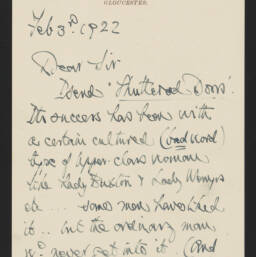 GLOUCESTER.
Feb 3rd 1922
Dear Sir
I send 'Shuttered Doors'.
Its success has been with
a certain cultured (bad word)
type of upper-class woman
like Lady Buxton & Lady Wemyss
etc ... some men have liked
it .. but the ordinary man
wd never get into it. (And